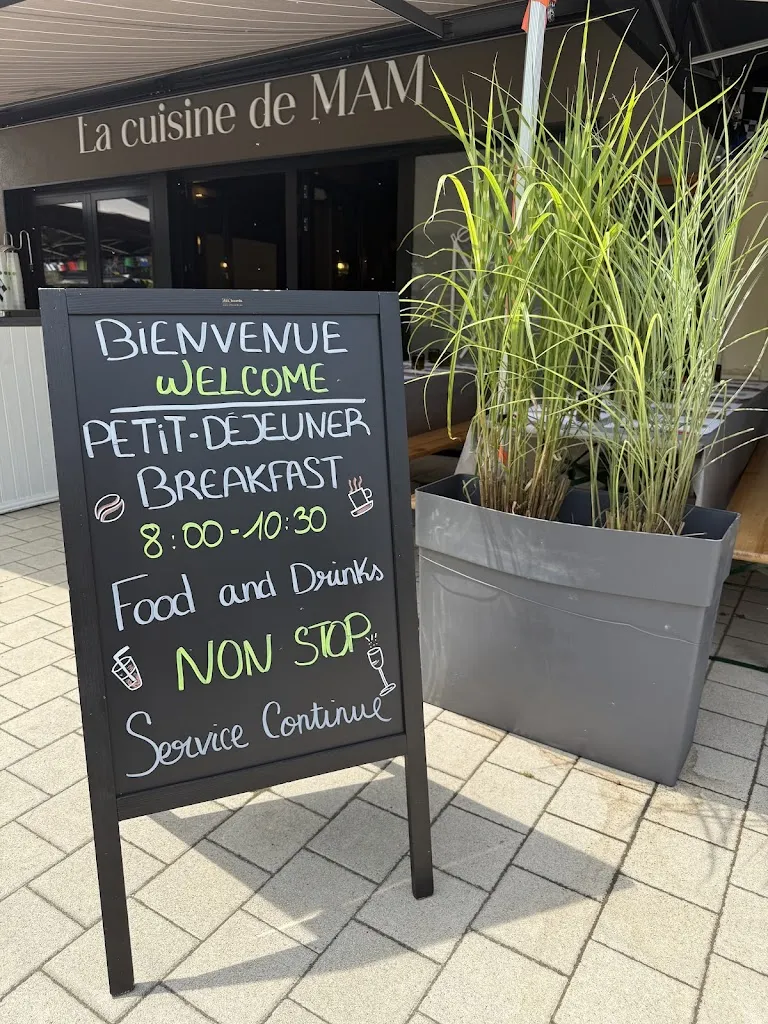 La cuisine de MAM
BiENVENUE
WELCOME
PETiT-DÉJEUNER
BREAKFAST
8:00-10:30
Food and Drinks
NON STOP
Service Continue